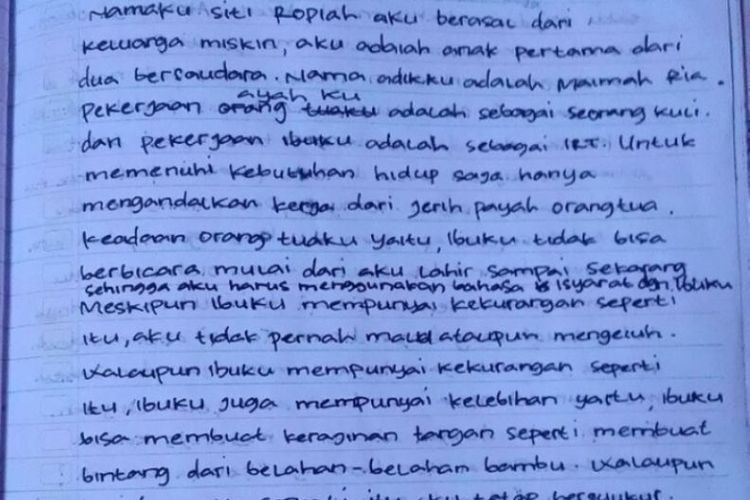 Namaku siti Ropiah aku berasal dari
keluarga miskin, aku adalah anak pertama dari
dua bersaudara. Nama adikku adalah Maimah Ria.
ayah ku
pekerjaan orang tuaku adalah sebagai seorang kuli.
dan pekerjaan ibuku adalah sebagai IRT. Untuk
memenuhi kebutuhan hidup saya hanya
mengandalkan kerja dari jerih payah orangtua.
keadaan orang tuaku yaitu, ibuku tidak bisa
berbicara mulai dari aku lahir sampai sekarang
sehingga aku harus menggunakan bahasa isyarat dgn ibuku
Meskipun ibuku mempunyai kekurangan seperti
itu, aku tidak pernah malu ataupun mengeluh.
walaupun ibuku mempunyai kekurangan seperti
itu, ibuku juga mempunyai kelebihan yaitu, ibuku
bisa membuat kerajinan tangan seperti membuat
bintang dari belahan-belahan bambu. walaupun
aku tetap bersyukur